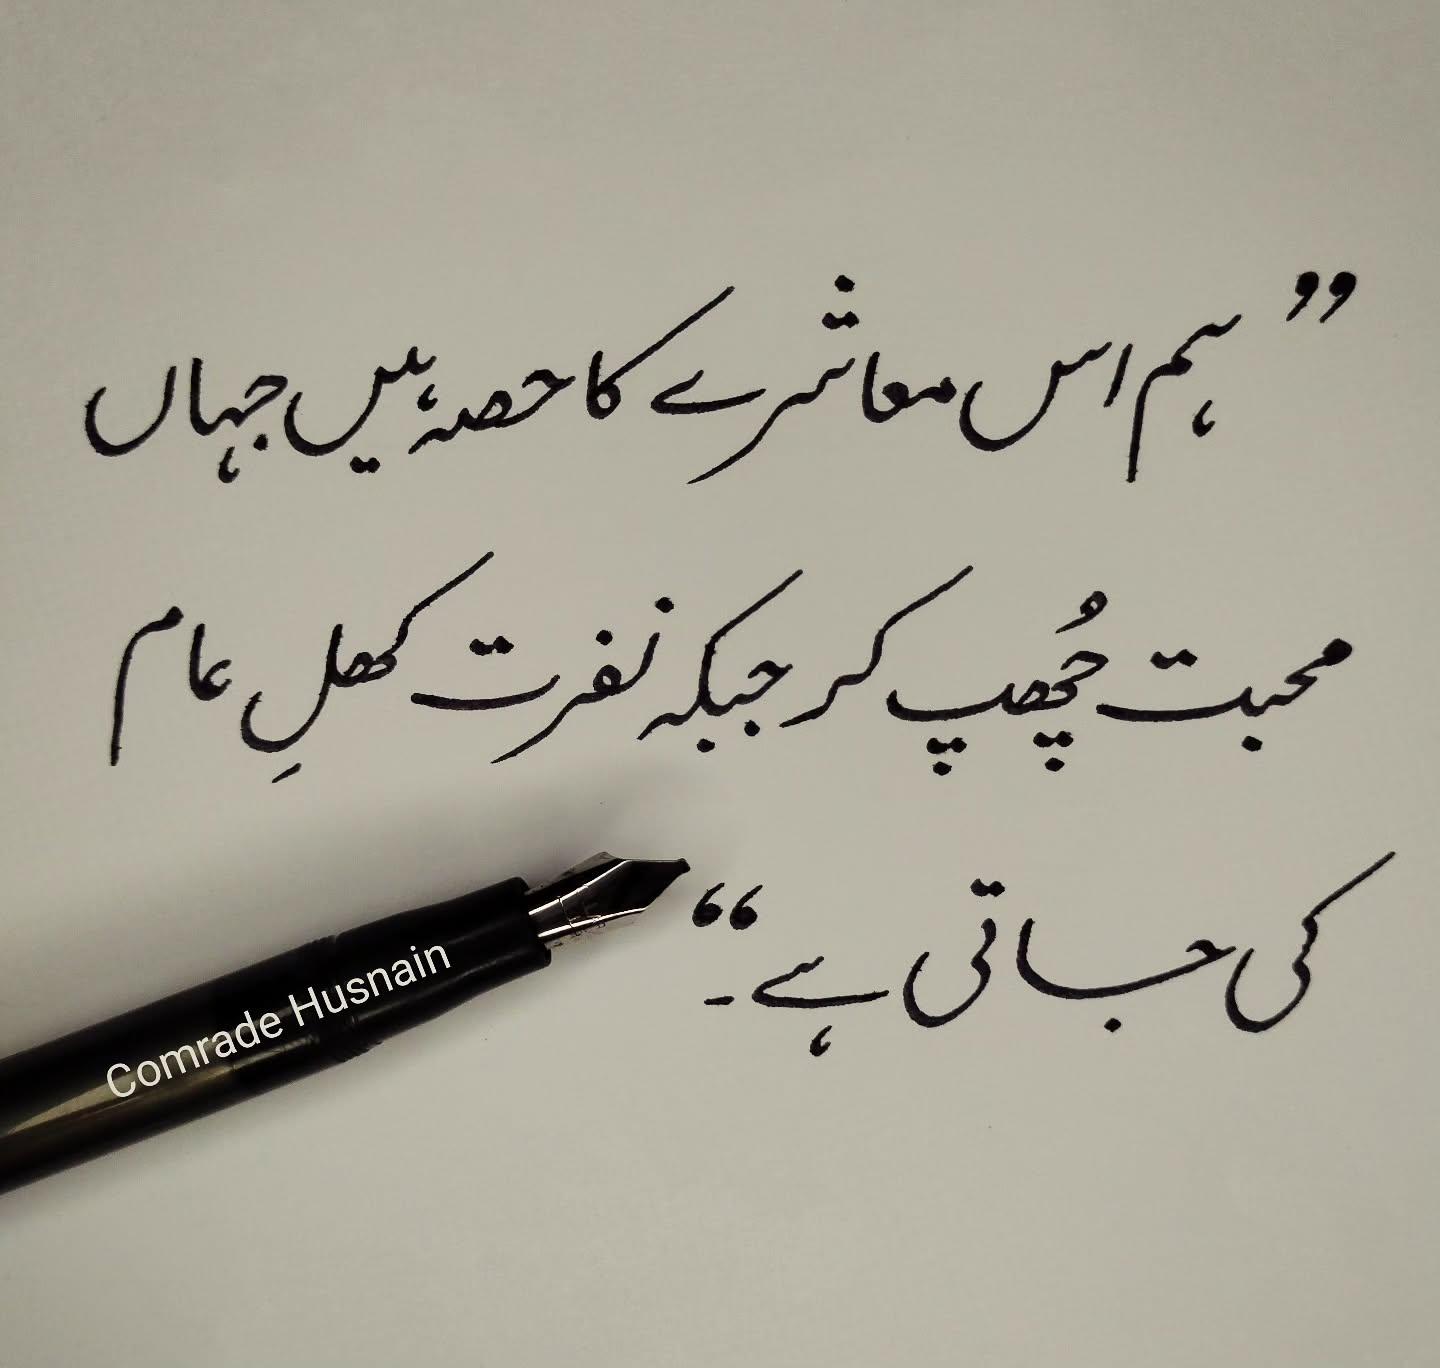 ”ہم اس معاشرے کا حصہ ہیں جہاں
محبت چُھپ کر جبکہ نفرت کھلِ عام
کی جاتی ہے۔“
Comrade Husnain